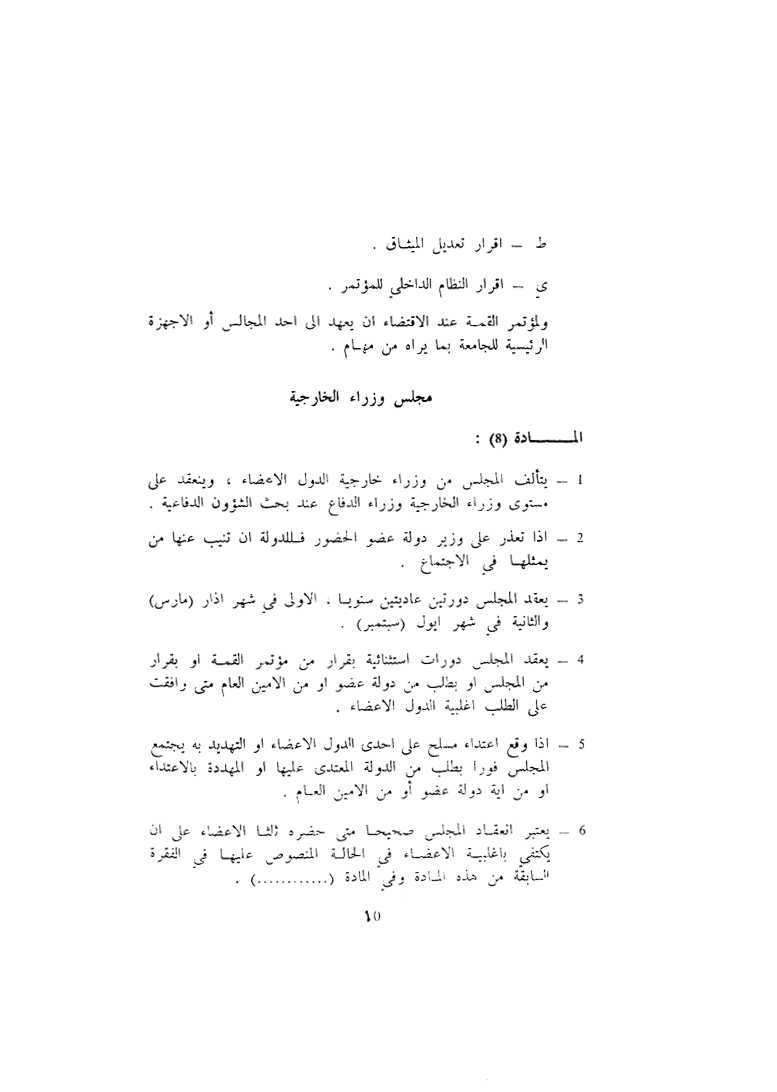 ط — اقرار تعديل الميثـاق .
ي — اقرار النظام الداخلي للمؤتمر .
ولمؤتمر القمـة عند الاقتضاء ان يعهد الى احد المجالس أو الاجهزة
الرئيسية للجامعة بما يراه من مهـام .
مجلس وزراء الخارجية
المـــــــادة (8) :
1 — يتألف المجلس من وزراء خارجية الدول الاعضاء ، وينعقد على
مستوى وزراء الخارجية وزراء الدفاع عند بحث الشؤون الدفاعية .
2 — اذا تعذر على وزير دولة عضو الحضور فـللدولة ان تنيب عنها من
يمثلهـا في الاجتماع .
3 — يعقد المجلس دورتين عاديتين سنويـا ، الاولى في شهر اذار (مارس)
والثانية في شهر ايول (سبتمبر) .
4 — يعقد المجلس دورات استثنائية بقرار من مؤتمر القمـة او بقرار
من المجلس او بطلب من دولة عضو او من الامين العام متى وافقت
على الطلب اغلبية الدول الاعضاء .
5 — اذا وقع اعتداء مسلح على احدى الدول الاعضاء او التهديد به يجتمع
المجلس فورا بطلب من الدولة المعتدى عليها او المهددة بالاعتداء
او من اية دولة عضو أو من الامين العـام .
6 — يعتبر انعقـاد المجلس صحيحـا متى حضره ثلثـا الاعضاء على ان
يكتفي باغلبيـة الاعضـاء في الحالـة المنصوص عليهـا في الفقرة
السابقة من هذه المـادة وفي المادة (............) .
10